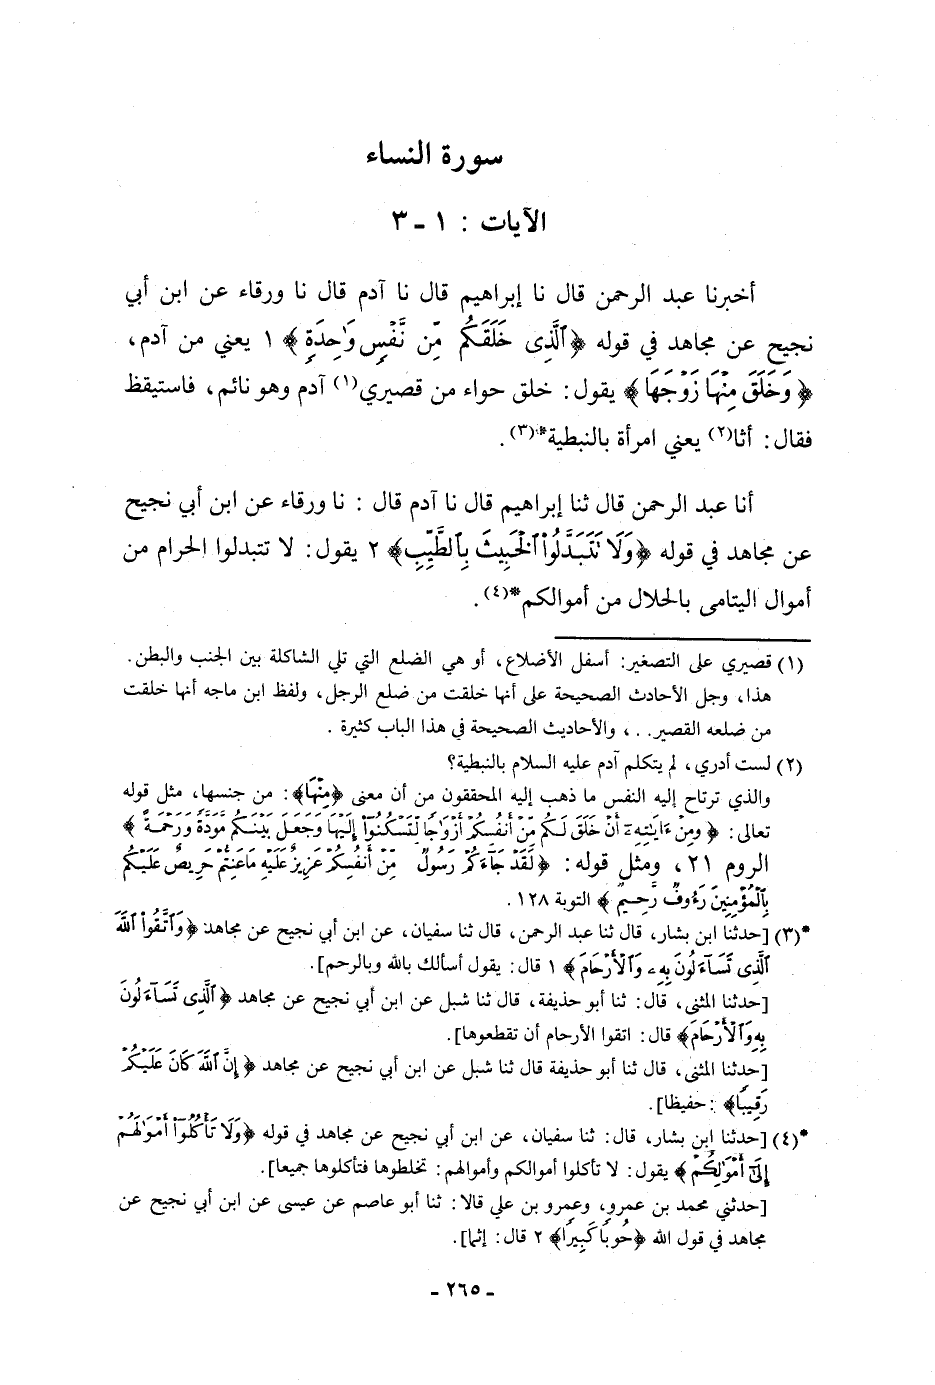 سورة النساء
الآيات : ١ - ٣
أخبرنا عبد الرحمن قال نا إبراهيم قال نا آدم قال نا ورقاء عن ابن أبي
نجيح عن مجاهد في قوله ﴿ٱلَّذِى خَلَقَكُم مِّن نَّفْسٍ وَٰحِدَةٍ﴾ ١ يعني من آدم،
﴿وَخَلَقَ مِنْهَا زَوْجَهَا﴾ يقول: خلق حواء من قصيري(١) آدم وهو نائم، فاستيقظ
فقال: أثا(٢) يعني امرأة بالنبطية*(٣).
أنا عبد الرحمن قال ثنا إبراهيم قال نا آدم قال : نا ورقاء عن ابن أبي نجيح
عن مجاهد في قوله ﴿وَلَا تَتَبَدَّلُوا۟ ٱلْخَبِيثَ بِٱلطَّيِّبِ﴾ ٢ يقول: لا تتبدلوا الحرام من
أموال اليتامى بالحلال من أموالكم*(٤).
(١) قصيري على التصغير: أسفل الأضلاع، أو هي الضلع التي تلي الشاكلة بين الجنب والبطن.
هذا، وجل الأحادث الصحيحة على أنها خلقت من ضلع الرجل، ولفظ ابن ماجه أنها خلقت
من ضلعه القصير. .، والأحاديث الصحيحة في هذا الباب كثيرة .
(٢) لست أدري، لم يتكلم آدم عليه السلام بالنبطية؟
والذي ترتاح إليه النفس ما ذهب إليه المحققون من أن معنى ﴿مِنْهَا﴾: من جنسها، مثل قوله
تعالى: ﴿وَمِنْ ءَايَٰتِهِۦٓ أَنْ خَلَقَ لَكُم مِّنْ أَنفُسِكُمْ أَزْوَٰجًا لِّتَسْكُنُوٓا۟ إِلَيْهَا وَجَعَلَ بَيْنَكُم مَّوَدَّةً وَرَحْمَةً﴾
الروم ٢١، ومثل قوله: ﴿لَقَدْ جَآءَكُمْ رَسُولٌ مِّنْ أَنفُسِكُمْ عَزِيزٌ عَلَيْهِ مَا عَنِتُّمْ حَرِيصٌ عَلَيْكُم
بِٱلْمُؤْمِنِينَ رَءُوفٌ رَّحِيمٌ﴾ التوبة ١٢٨.
*(٣) [حدثنا ابن بشار، قال ثنا عبد الرحمن، قال ثنا سفيان، عن ابن أبي نجيح عن مجاهد: ﴿وَٱتَّقُوا۟ ٱللَّهَ
ٱلَّذِى تَسَآءَلُونَ بِهِۦ وَٱلْأَرْحَامَ﴾ ١ قال: يقول أسألك بالله وبالرحم].
[حدثنا المثنى، قال: ثنا أبو حذيفة، قال ثنا شبل عن ابن أبي نجيح عن مجاهد ﴿ٱلَّذِى تَسَآءَلُونَ
بِهِۦ وَٱلْأَرْحَامَ﴾ قال: اتقوا الأرحام أن تقطعوها].
[حدثنا المثنى، قال ثنا أبو حذيفة قال ثنا شبل عن ابن أبي نجيح عن مجاهد ﴿إِنَّ ٱللَّهَ كَانَ عَلَيْكُمْ
رَقِيبًا﴾ : حفيظا].
*(٤) [حدثنا ابن بشار، قال: ثنا سفيان، عن ابن أبي نجيح عن مجاهد في قوله ﴿وَلَا تَأْكُلُوٓا۟ أَمْوَٰلَهُمْ
إِلَىٰٓ أَمْوَٰلِكُمْ﴾ يقول: لا تأكلوا أموالكم وأموالهم: تخلطوها فتأكلوها جميعا].
[حدثني محمد بن عمرو، وعمرو بن علي قالا: ثنا أبو عاصم عن عيسى عن ابن أبي نجيح عن
مجاهد في قول الله ﴿حُوبًا كَبِيرًا﴾ ٢ قال: إثما].
- ٢٦٥ -